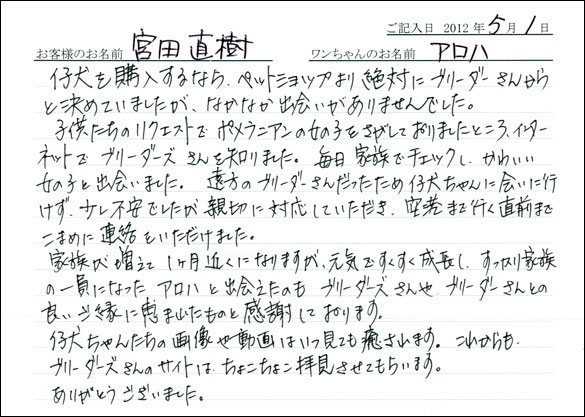 ご記入日 2012年5月1日
お客様のお名前 宮田直樹 ワンちゃんのお名前 アロハ
仔犬を購入するなら、ペットショップより絶対にブリーダーさんから
と決めていましたが、なかなか出会いがありませんでした。
子供たちのリクエストでポメラニアンの女の子をさがしておりましたところ、インター
ネットでブリーダーズさんを知りました。毎日家族でチェックし、かわいい
女の子と出会いました。遠方のブリーダーさんだったため仔犬ちゃんに会いに行
けず、少し不安でしたが親切に対応していただき、空港まで行く直前まで
こまめに連絡をいただけました。
家族が増えて1ヶ月近くになりますが、元気ですくすく成長し、すっかり家族
の一員になったアロハと出会えたのもブリーダーズさんや、ブリーダーさんとの
良いご縁に恵まれたものと感謝しております。
仔犬ちゃんたちの画像や動画はいつ見ても癒されます。これからも
ブリーダーズさんのサイトは、ちょこちょこ拝見させてもらいます。
ありがとうございました。